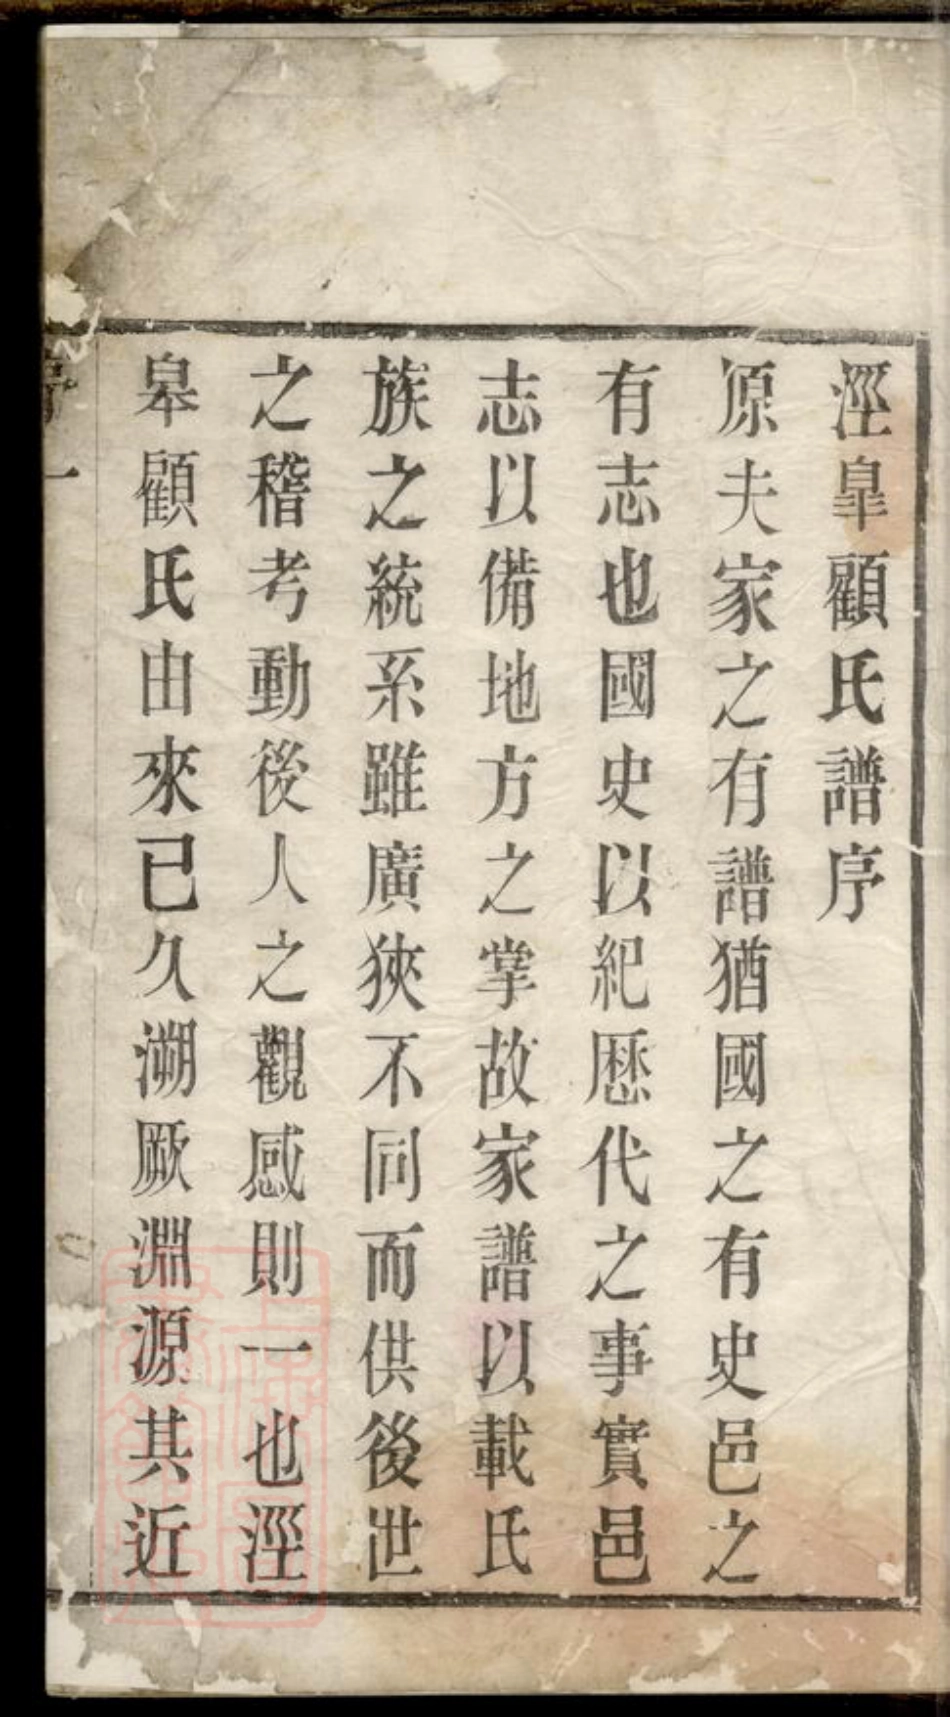 涇臯顧氏譜序
原夫家之有譜猶國之有史邑之
有志也國史以紀歷代之事實邑
志以備地方之掌故家譜以載氏
族之統系雖廣狹不同而供後世
之稽考動後人之觀感則一也涇
皋顧氏由來已久溯厥淵源其近
序 一